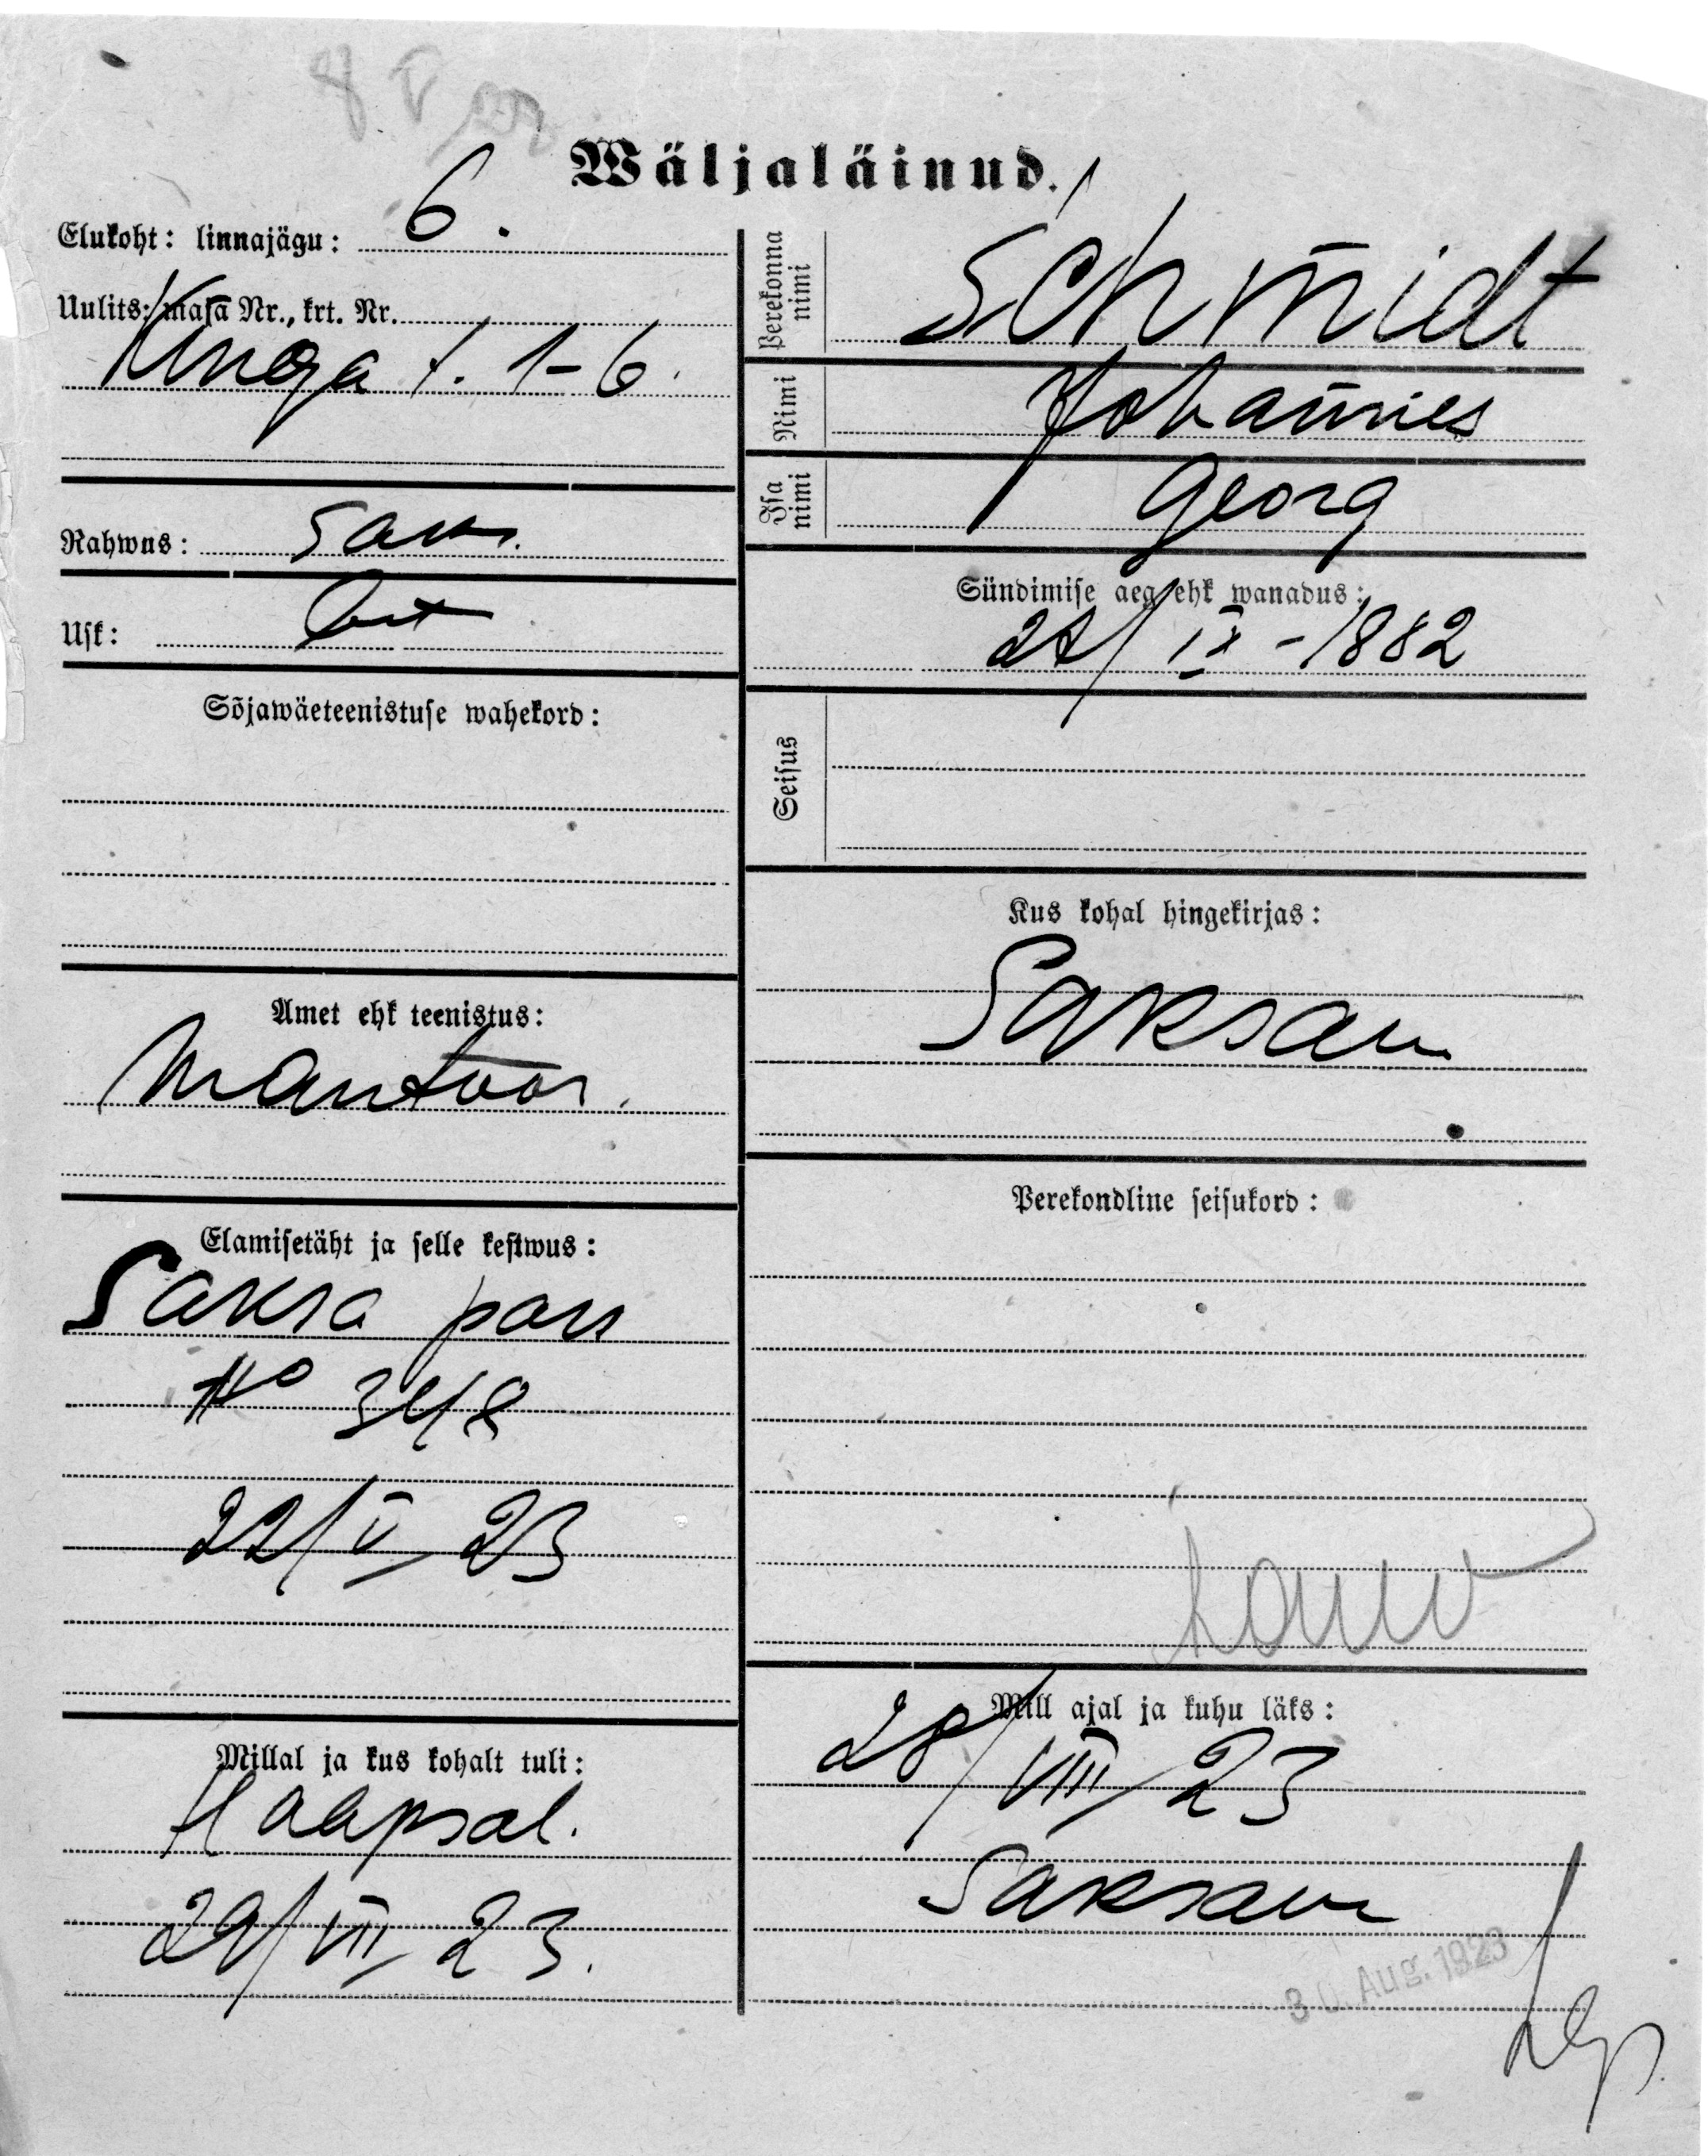 Wäljaläinud.
Elukoht: linnajägu: 6.
Uulits: maja Nr., krt. Nr.
Kinga t. 1-6.
Rahwus: saks.
Usk: lut
Sõjawäeteenistuse wahekord:
Amet ehk teenistus:
Montöör.
Elamisetäht ja selle kestwus:
Saksa pass
No 3418
22/V 23
Millal ja kus kohalt tuli:
Haapsal.
29/VII 23.
Perekonna nimi
Schmidt
Nimi
Johannes
Isa nimi
Georg
Sündimise aeg ehk wanadus:
/IX - 1882
Seisus
Kus kohal hingekirjas:
Saksam
Perekondline seisukord:
Mill ajal ja kuhu läks:
28/VIII 23
Saksam
30. Aug. 1923